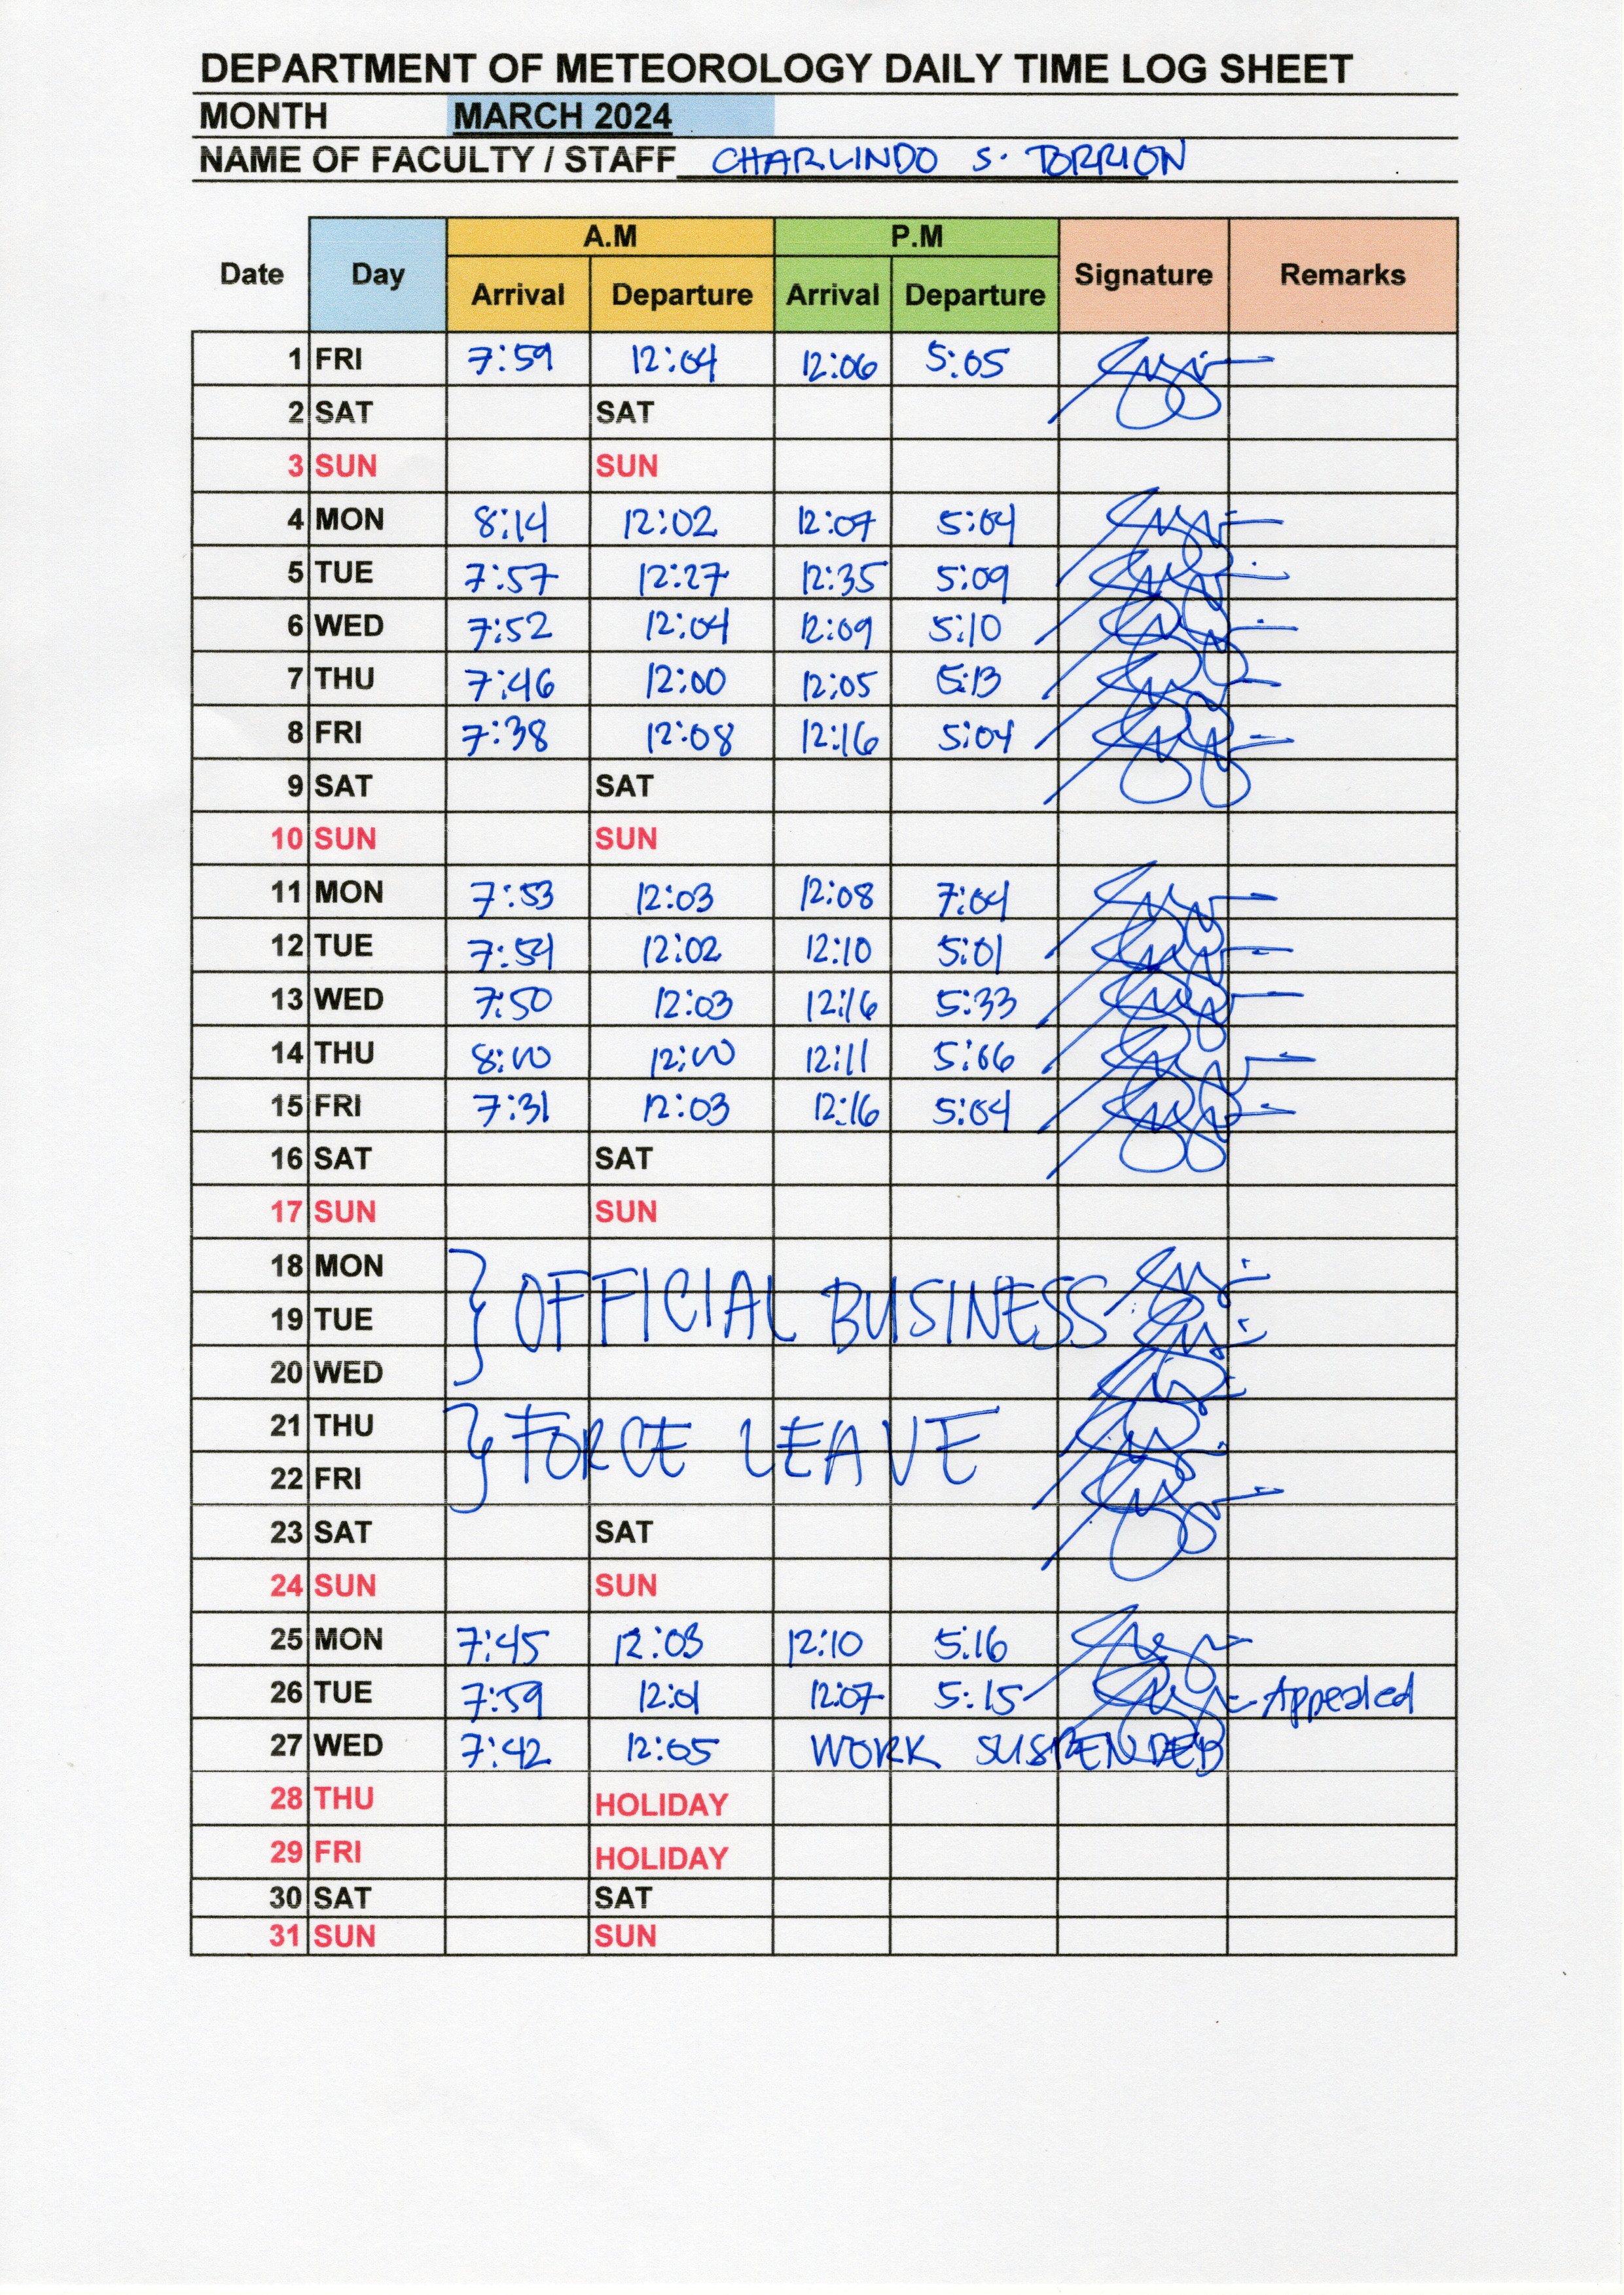 DEPARTMENT OF METEOROLOGY DAILY TIME LOG SHEET
MONTH MARCH 2024
NAME OF FACULTY / STAFF CHARLINDO S. TORRION
Date Day A.M P.M Signature Remarks
Arrival Departure Arrival Departure
1 FRI 7:59 12:04 12:06 5:05
2 SAT SAT
3 SUN SUN
4 MON 8:14 12:02 12:07 5:04
5 TUE 7:57 12:27 12:35 5:09
6 WED 7:52 12:04 12:09 5:10
7 THU 7:46 12:00 12:05 5:13
8 FRI 7:38 12:08 12:16 5:04
9 SAT SAT
10 SUN SUN
11 MON 7:53 12:03 12:08 7:04
12 TUE 7:59 12:02 12:10 5:01
13 WED 7:50 12:03 12:16 5:33
14 THU 8:00 12:00 12:11 5:06
15 FRI 7:31 12:03 12:16 5:04
16 SAT SAT
17 SUN SUN
18 MON
19 TUE OFFICIAL BUSINESS
20 WED
21 THU FORCE LEAVE
22 FRI
23 SAT SAT
24 SUN SUN
25 MON 7:45 12:03 12:10 5:16
26 TUE 7:59 12:01 12:07 5:15 - Appealed
27 WED 7:42 12:05 WORK SUSPENDED
28 THU HOLIDAY
29 FRI HOLIDAY
30 SAT SAT
31 SUN SUN